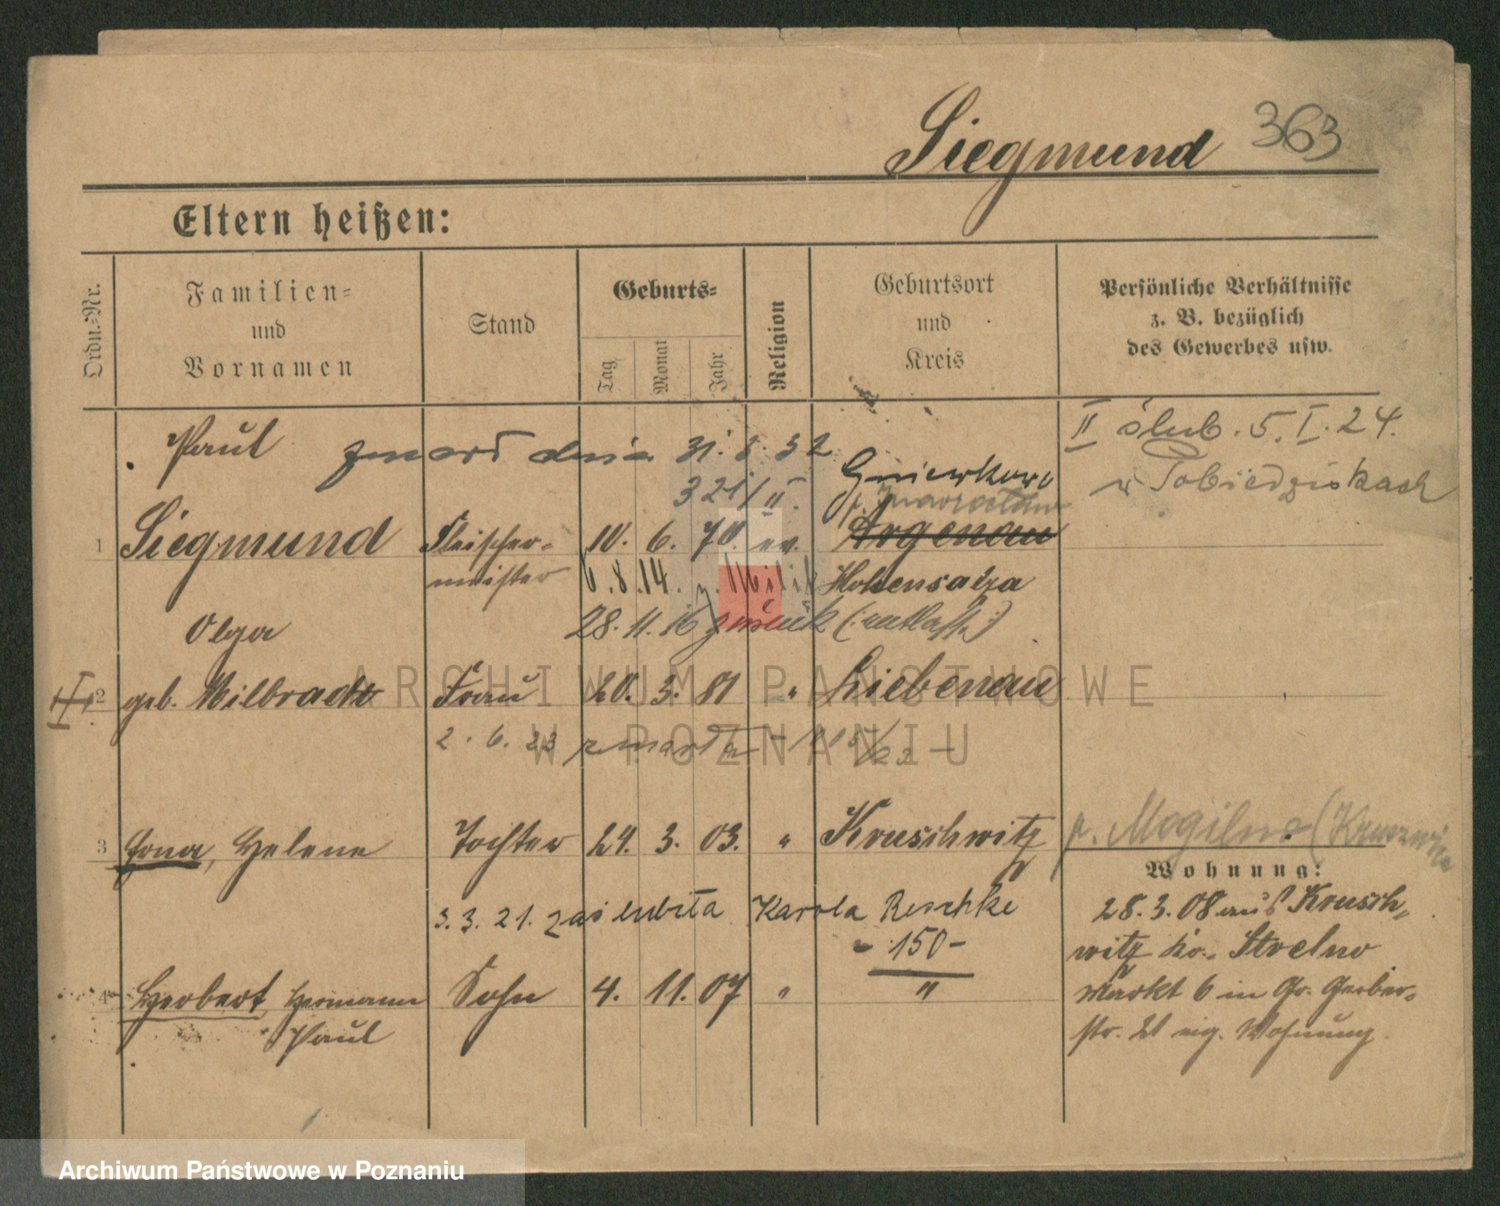 Siegmund 363
Eltern heißen:
Ordn.-Nr.
Familien-
und
Vornamen
Stand
Geburts-
Tag
Monat
Jahr
Religion
Geburtsort
und
Kreis
Persönliche Verhältnisse
z. B. bezüglich
des Gewerbes usw.
II ślub. 5. I. 24.
w Pobiedziskach
Paul zmarł dnia 31. 8. 32
321/II.
Gniewkowo
p. Inowrocław
1 Siegmund Fleischer- 10. 6. 70. ev. Argenau
meister 6. 8. 14. z. Milit Hohensalza
Olga 28. 11. 16 zurück
2 geb. Milbradt Frau 20. 3. 81 " Liebenau
2. 6. 23 zmarła
3 Erna, Helene Tochter 24. 3. 03. " Kruschwitz
p. Mogilno (Kruszwica
Wohnung:
3. 3. 21. zaślubiła Karola Reschke
150-
28. 3. 08 aus Krusch-
witz Kr. Strelno
Markt 6 in Gr. Gerber-
str. 21 eig. Wohnung.
4 Herbert, Hermann Sohn 4. 11. 07 " "
Paul
ARCHIWUM PAŃSTWOWE
W POZNANIU
Archiwum Państwowe w Poznaniu